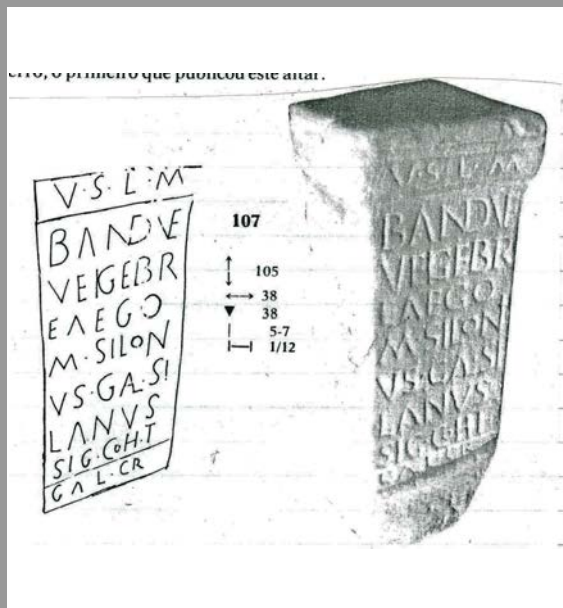 erro, o primeiro que publicou este altar.
V·S·L·M
BANDVE
VEIGEBR
EAEGO
M·SILON
VS·GAL·SI
LANVS
SIG·COH·I
GAL·CR
107
105
38
38
5-7
1/12
V·S·L·M
BANDVE
VEIGEBR
EAEGO
M·SILON
VS·GAL·SI
LANVS
SIG·COH·I